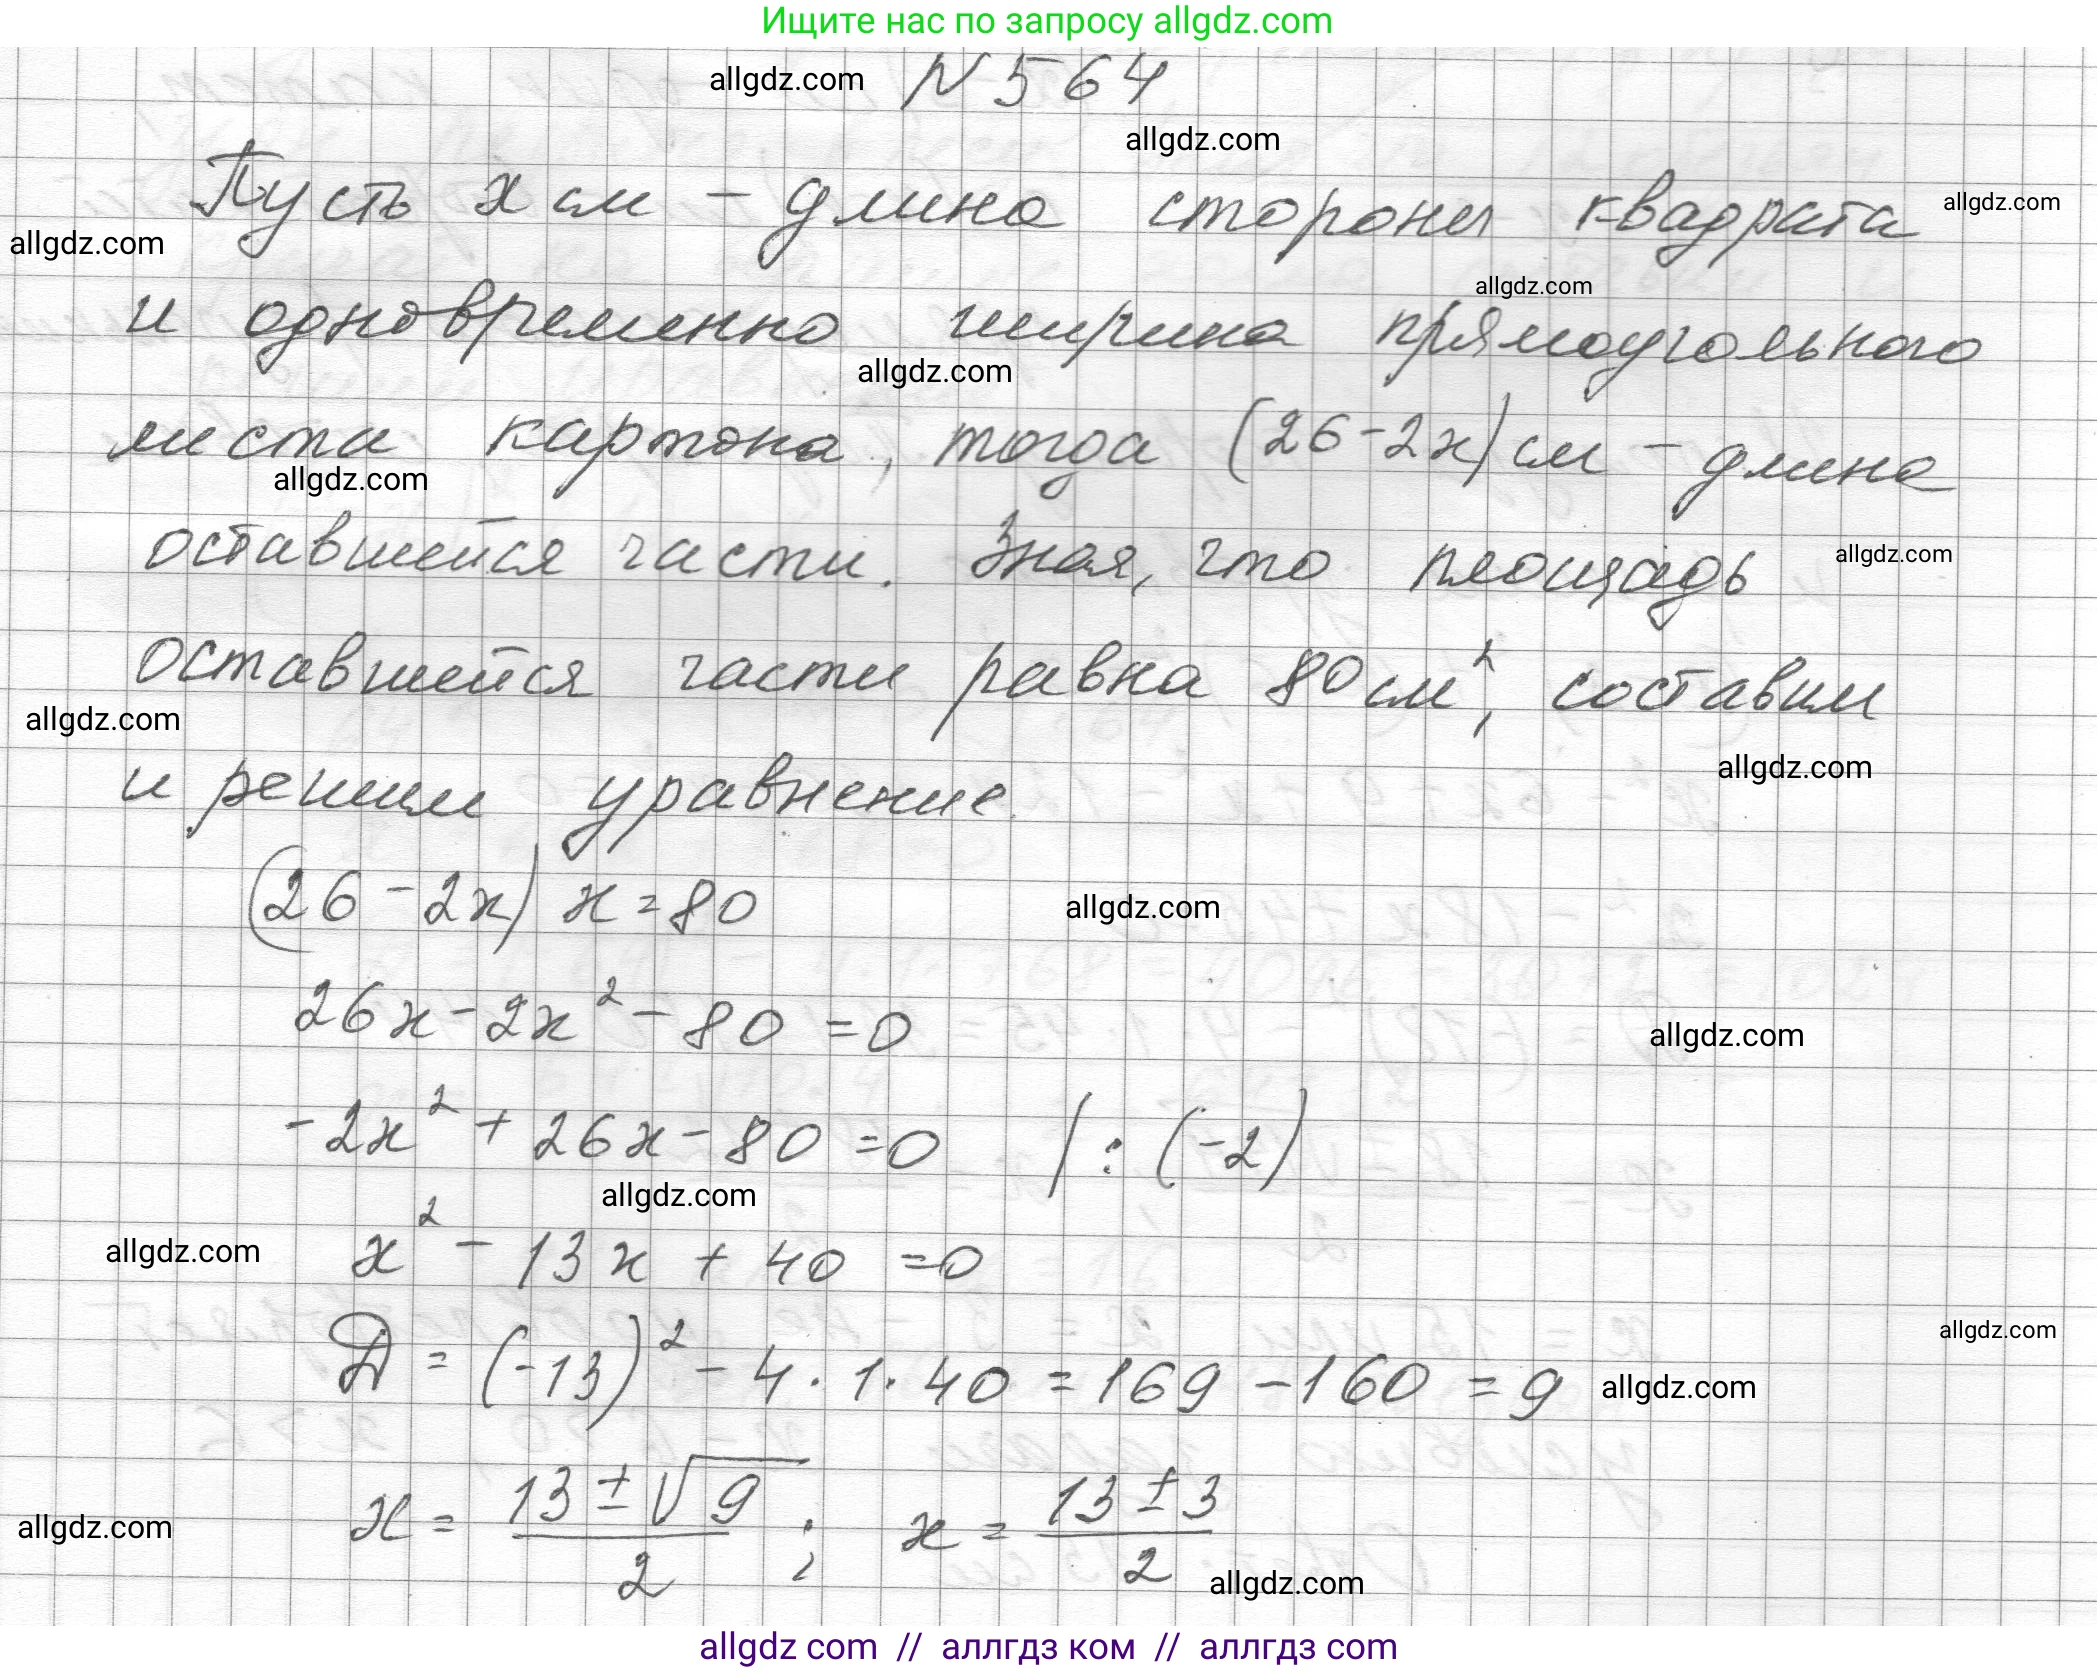 Ищите нас по запросу allgdz.com
allgdz.com N 564
allgdz.com
Пусть x см – длина стороны квадрата allgdz.com
allgdz.com
allgdz.com
и одновременно ширина прямоугольного
allgdz.com
листа картона, тогда (26-2x) см – длина
allgdz.com
оставшейся части. Зная, что площадь allgdz.com
оставшейся части равна 80 см², составим
allgdz.com
allgdz.com
и решим уравнение.
(26-2x) x = 80 allgdz.com
26x - 2x² - 80 = 0 allgdz.com
-2x² + 26x - 80 = 0 | : (-2)
allgdz.com
allgdz.com x² - 13x + 40 = 0
allgdz.com
Д = (-13)² - 4 · 1 · 40 = 169 - 160 = 9 allgdz.com
allgdz.com x = (13 ± √9)/2 ; x = (13 ± 3)/2
allgdz.com
allgdz com // аллгдз ком // аллгдз com